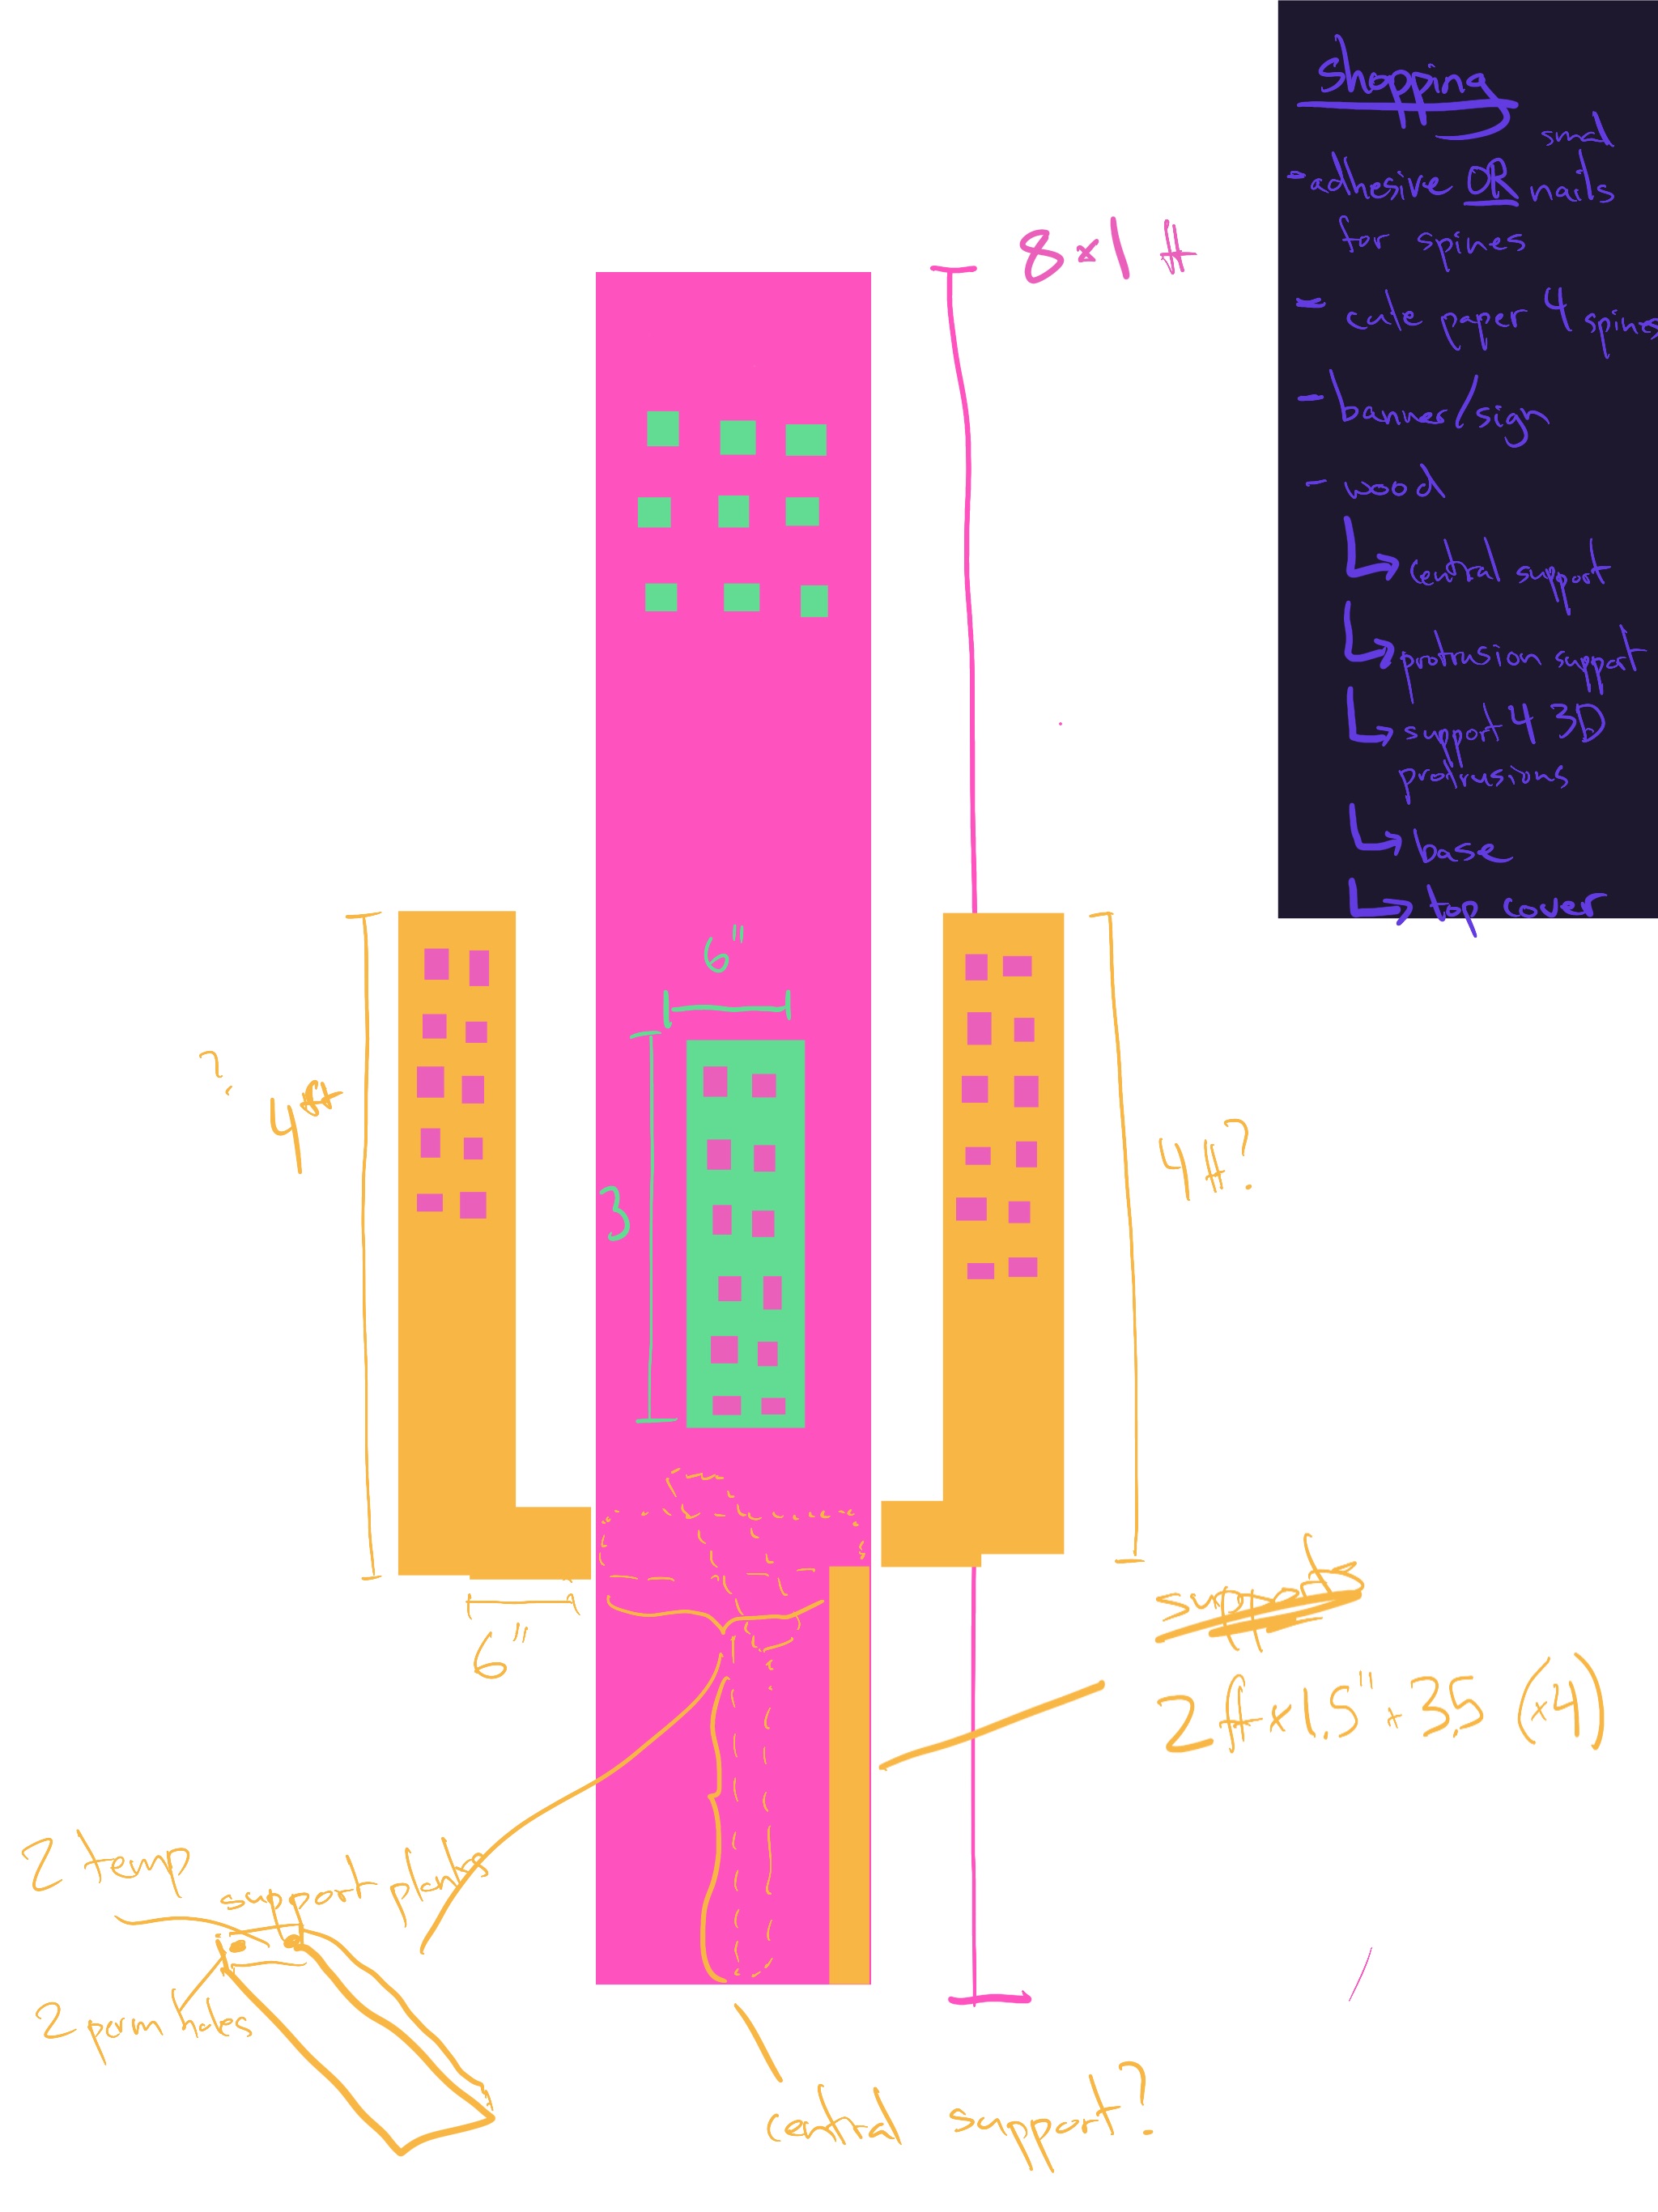 shopping
small
- adhesive OR nails
for spines
- cute paper 4 spines
- banner/sign
- wood
↳ central support
↳ protrusion support
↳ support 4 3D
protrusions
↳ base
↳ top cover
8x1 ft
6"
?
4ft
3
4ft?
6"
supports
2ft x 1.5" x 3.5 (x4)
2 temp
support planks
2 perm holes
central support?